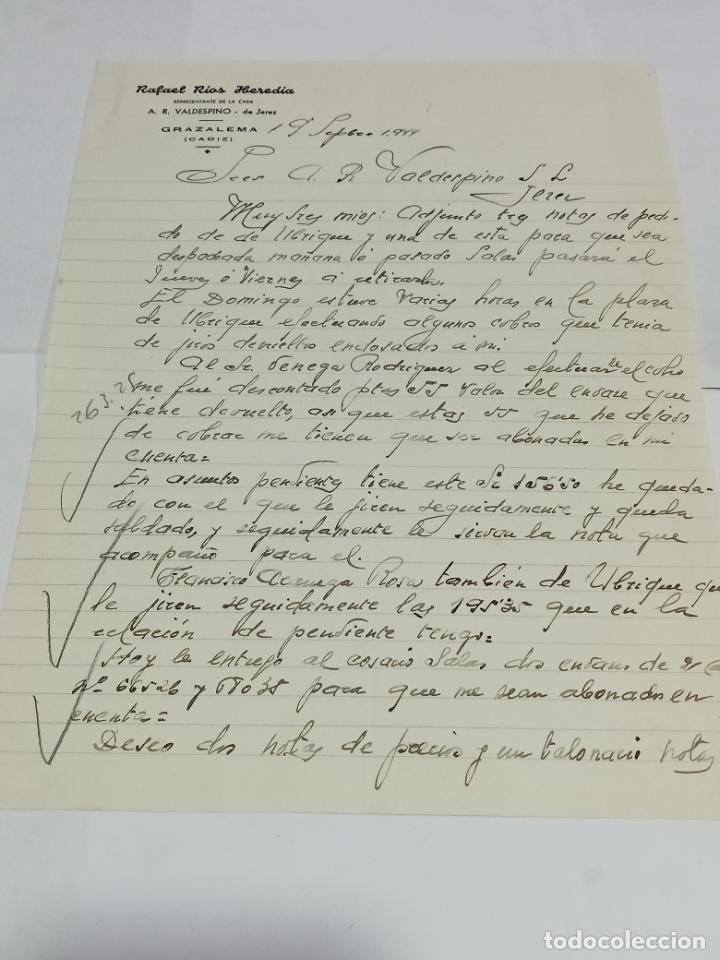 Rafael Rios Heredia
REPRESENTANTE DE LA CASA
A. R. VALDESPINO - de Jerez
GRAZALEMA
(CADIZ)
19 Sepbre 1.944
Sres A. R. Valdespino S L
Jerez
Muy Sres mios: Adjunto tres notas de pedi-
do de de Ubrique y una de esta para que sea
despachada mañana ó pasado Salas pasará el
Jueves ó Viernes á retirarla.
El Domingo estuve varias horas en la plaza
de Ubrique efectuando algunos cobros que tenia
de jiros devueltos enclosados á mi.
Al Sr. Venega Rodriguez al efectuarle el cobro
26 3.25
me fué descontado ptas 55 valor del envase que
tiene devuelto, asi que estas 55 que he dejado
de cobrar me tienen que ser abonadas en mi
cuenta=
En asuntos pendientes tiene este Sr 156'50 he queda-
do con el que le jiren seguidamente y queda
saldado, y seguidamente le sirvan la nota que
acompaño para el.
Francisco Rosa también de Ubrique que
le jiren seguidamente las 195'35 que en la
relación de pendiente tengo=
Hoy le entrego al cosario Salas dos envases de
nº 66526 y 58035 para que me sean abonados en
cuenta=
Deseo dos notas de precios y un talonario notas
todocoleccion
todocoleccion.net